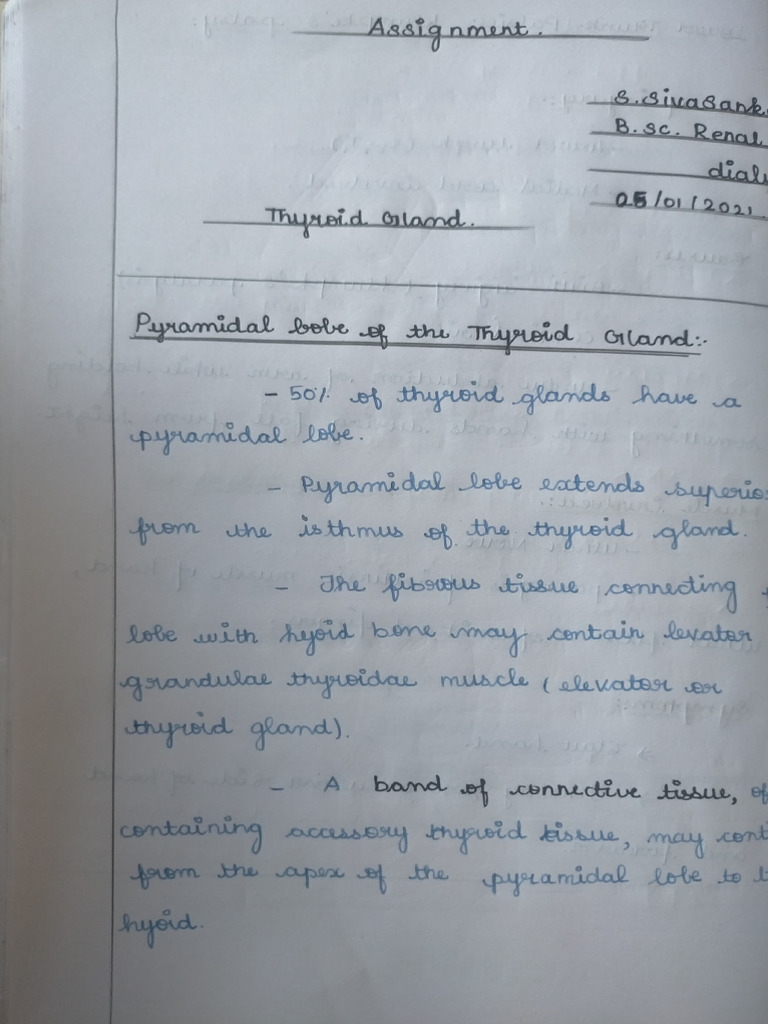 Assignment.
S. Sivasank
B.sc. Renal
dial
05/01/2021.
Thyroid Gland.
Pyramidal lobe of the Thyroid Gland:-
- 50% of thyroid glands have a
pyramidal lobe.
- Pyramidal lobe extends superio
from the isthmus of the thyroid gland.
- The fibrous tissue connecting
lobe with hyoid bone may contain levator
grandulae thyroidae muscle (elevator or
thyroid gland).
- A band of connective tissue, of
containing accessory thyroid tissue, may cont
from the apex of the pyramidal lobe to t
hyoid.